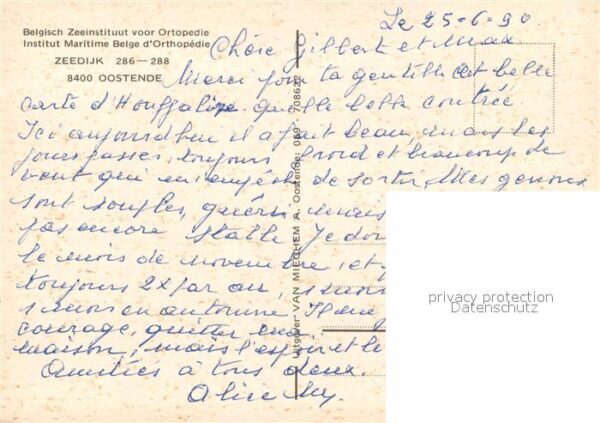 Belgisch Zeeinstituut voor Ortopedie
Institut Maritime Belge d'Orthopédie
ZEEDIJK 286 — 288
8400 OOSTENDE
Le 25-6-90
Chère Gilberte et Max
Merci pour ta gentille et belle
carte d'Houffalize quelle belle contrée.
Ici aujourd'hui il a fait beau, mais les
jours passés, toujours froid et beaucoup de
vent qui m'empêche de sortir, Mes genoux
sont souples, mais
pas encore stable Je
le mois de novembre, et
toujours 2x par an,
1 mois en automne. Il
courage, quitter ma
maison, mais l'espoir et le
Amitiés à tous deux.
Alice
Uitgever VAN MIEGHEM A. Oostende: 059 - 708622
privacy protection
Datenschutz